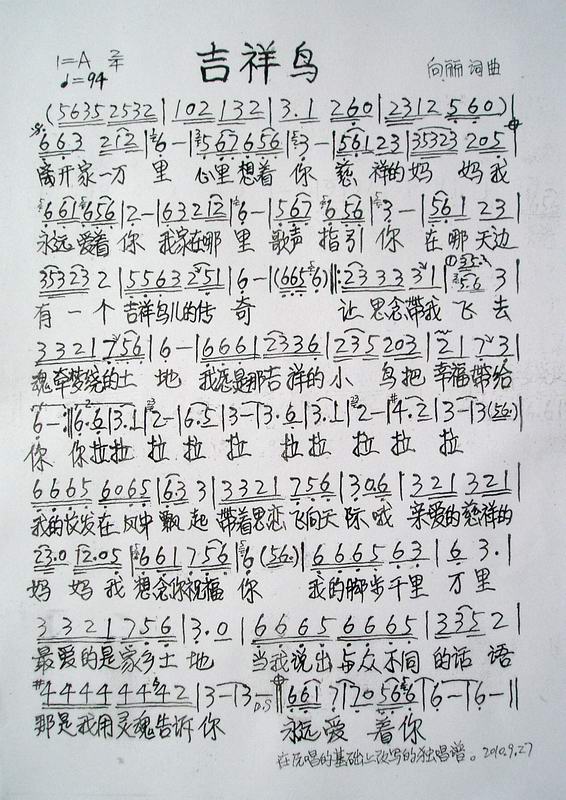 吉祥鸟
1=A 2/4
♩=94
向丽 词曲
(5635 2532 | 102 132 | 3.1 260 | 2312 560) |
663 212 | 6 - | 567 656 | 3 - | 561 23 | 35323 205 |
离开家一万 里 心里想着 你 慈 祥的妈 妈我
661 656 | 2 - | 632 12 | 6 - | 567 656 | 3 - | 561 23 |
永远爱着 你 我家在哪 里 歌声 指引 你 在哪天边
35323 2 | 5563 251 | 6 - | (6656) |: 23 333 31 | 3 |
有 一 个 吉祥鸟儿的传 奇 让 思念带我 飞 去
3321 756 | 6 - | 6661 2336 | 235 203 | 21 73 |
魂牵梦绕的土 地 我愿是那吉祥的小 鸟把 幸福带给
6 - :| 6.6 | 3.1 | 2 - | 6.5 | 3 - | 3.6 | 3.1 | 2 - | #4.2 | 3 - | 3 (56.) |
你 你拉拉 拉 拉 拉 拉拉 拉 拉 拉
6665 6065 | 63 3 | 3321 756 | 306 | 321 321 |
我的放发在 风中 飘 起 带着思恋 飞向天 际哦 亲爱的慈祥的
23.0 12.05 | 661 756 | 6 (56.) | 6665 63 | 6 3. |
妈 妈 我 想念你祝福 你 我的脚步千里 万 里
3 321 756 | 3.0 | 6665 6665 | 335 2 |
最爱的是家乡土 地 当我说出与众不同 的话 语
#4444 4442 | 3 - 3 - D.S | 661 7 | 70 56 | 6 - | 6 - ‖
那是我用灵魂告诉 你 永远 爱 着 你
在伍唱的基础上改写的独唱谱。2010.9.27